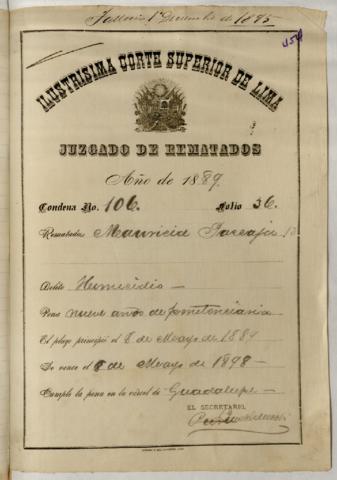 Falleció 1º Diciembre de 1895
ILUSTRISIMA CORTE SUPERIOR DE LIMA
JUZGADO DE REMATADOS
Año de 1889.
Condena No. 106. Folio 36.
Rematado Mauricia
Delito Homicidio —
Pena nueve años de penitenciaria
El plazo principió el 8 de Mayo de 1889
Se vence el 8 de Mayo de 1898 —
Cumple la pena en la cárcel de Guadalupe —
EL SECRETARIO,